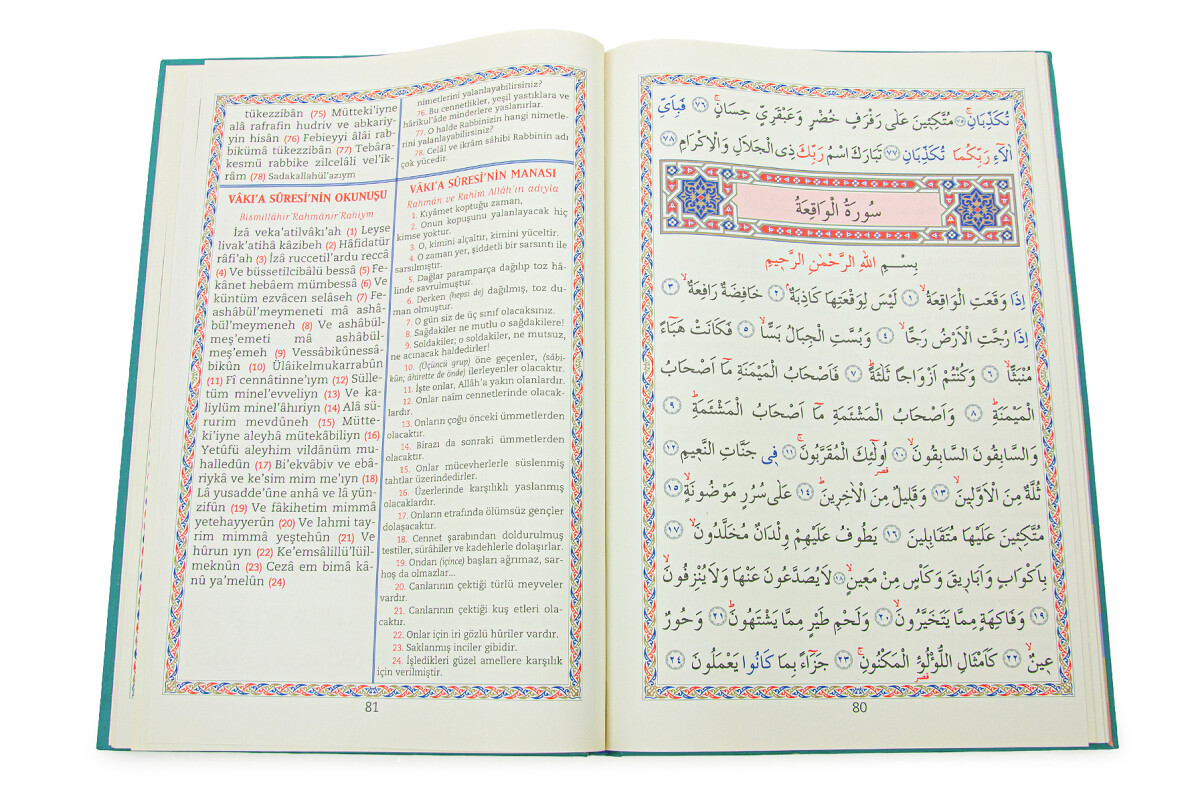 تُكَذِّبَانِ ﴿٧٥﴾ مُتَّكِـٔينَ عَلٰى رَفْرَفٍ خُضْرٍ وَعَبْقَرِيٍّ حِسَانٍۚ ﴿٧٦﴾ فَبِاَيِّ
اٰلَٓاءِ رَبِّكُمَا تُكَذِّبَانِ ﴿٧٧﴾ تَبَارَكَ اسْمُ رَبِّكَ ذِي الْجَلَالِ وَالْاِكْرَامِ ﴿٧٨﴾
سُورَةُ الْوَاقِعَةِ
بِسْــمِ اللّٰهِ الرَّحْمٰنِ الرَّحٖيمِ
اِذَا وَقَعَتِ الْوَاقِعَةُۙ ﴿١﴾ لَيْسَ لِوَقْعَتِهَا كَاذِبَةٌۢ ﴿٢﴾ خَافِضَةٌ رَافِعَةٌۙ ﴿٣﴾
اِذَا رُجَّتِ الْاَرْضُ رَجًّاۙ ﴿٤﴾ وَبُسَّتِ الْجِبَالُ بَسًّاۙ ﴿٥﴾ فَكَانَتْ هَبَٓاءً
مُنْبَثًّاۙ ﴿٦﴾ وَكُنْتُمْ اَزْوَاجًا ثَلٰثَةًۜ ﴿٧﴾ فَاَصْحَابُ الْمَيْمَنَةِ مَٓا اَصْحَابُ
الْمَيْمَنَةِۜ ﴿٨﴾ وَاَصْحَابُ الْمَشْـَٔمَةِ مَٓا اَصْحَابُ الْمَشْـَٔمَةِۜ ﴿٩﴾
وَالسَّابِقُونَ السَّابِقُونَۙ ﴿١٠﴾ اُولٰٓئِكَ الْمُقَرَّبُونَۚ ﴿١١﴾ فٖي جَنَّاتِ النَّعٖيمِ ﴿١٢﴾
قصر
ثُلَّةٌ مِنَ الْاَوَّلٖينَۙ ﴿١٣﴾ وَقَلٖيلٌ مِنَ الْاٰخِرٖينَۜ ﴿١٤﴾ عَلٰى سُرُرٍ مَوْضُونَةٍۙ ﴿١٥﴾
مُتَّكِـٔينَ عَلَيْهَا مُتَقَابِلٖينَ ﴿١٦﴾ يَطُوفُ عَلَيْهِمْ وِلْدَانٌ مُخَلَّدُونَۙ ﴿١٧﴾
بِاَكْوَابٍ وَاَبَارٖيقَ وَكَأْسٍ مِنْ مَعٖينٍۙ ﴿١٨﴾ لَا يُصَدَّعُونَ عَنْهَا وَلَا يُنْزِفُونَۙ
﴿١٩﴾ وَفَاكِهَةٍ مِمَّا يَتَخَيَّرُونَۙ ﴿٢٠﴾ وَلَحْمِ طَيْرٍ مِمَّا يَشْتَهُونَۜ ﴿٢١﴾ وَحُورٌ
عٖينٌۙ ﴿٢٢﴾ كَاَمْثَالِ اللُّؤْلُؤِ الْمَكْنُونِۚ ﴿٢٣﴾ جَزَٓاءً بِمَا كَانُوا يَعْمَلُونَ ﴿٢٤﴾
قصر
80
tükezzibân (75) Mütteki'iyne
alâ rafrafin hudriv ve abkariy-
yin hisân (76) Febieyyi âlâi rab-
bikümâ tükezzibân (77) Tebâra-
kesmü rabbike zilcelâli vel'ik-
râm (78) Sadakallahül'azıym
VÂKI'A SÛRESİ'NİN OKUNUŞU
Bismillâhir'Rahmânir'Rahiym
İzâ veka'atilvâkı'ah (1) Leyse
livak'atihâ kâzibeh (2) Hâfidatür
râfi'ah (3) İzâ ruccetil'ardu reccâ
(4) Ve büssetilcibâlü bessâ (5) Fe-
kânet hebâem mümbessâ (6) Ve
küntüm ezvâcen selâseh (7) Fe-
ashâbül'meymeneti mâ ashâ-
bül'meymeneh (8) Ve ashâbül-
meş'emeti mâ ashâbül-
meş'emeh (9) Vessâbikûnessâ-
bikûn (10) Ülâikelmukarrabûn
(11) Fî cennâtinne'ıym (12) Sülle-
tüm minel'evveliyn (13) Ve ka-
liylüm minel'âhıriyn (14) Alâ sü-
rurim mevdûneh (15) Mütte-
ki'iyne aleyhâ mütekâbiliyn (16)
Yetûfü aleyhim vildânüm mu-
halledûn (17) Bi'ekvâbiv ve ebâ-
riykâ ve ke'sim mim me'ıyn (18)
Lâ yusadde'ûne anhâ ve lâ yün-
zifûn (19) Ve fâkihetim mimmâ
yetehayyerûn (20) Ve lahmi tay-
rim mimmâ yeştehûn (21) Ve
hûrun ıyn (22) Ke'emsâlillü'lüil-
meknûn (23) Cezâ em bimâ kâ-
nû ya'melûn (24)
nimetlerini yalanlayabilirsiniz?
76. Bu cennetlikler, yeşil yastıklara ve
hârikul'âde minderlere yaslanırlar.
77. O halde Rabbinizin hangi nimetle-
rini yalanlayabilirsiniz?
78. Celâl ve ikrâm sâhibi Rabbinin adı
çok yücedir.
VÂKI'A SÛRESİ'NİN MANASI
Rahmân ve Rahîm Allâh'ın adıyla
1. Kıyâmet koptuğu zaman,
2. Onun kopuşunu yalanlayacak hiç
kimse yoktur.
3. O, kimini alçaltır, kimini yüceltir.
4. O zaman yer, şiddetli bir sarsıntı ile
sarsılmıştır.
5. Dağlar paramparça dağılıp toz hâ-
linde savrulmuştur.
6. Derken (hepsi de) dağılmış, toz du-
man olmuştur.
7. O gün siz de üç sınıf olacaksınız.
8. Sağdakiler ne mutlu o sağdakilere!
9. Soldakiler; o soldakiler, ne mutsuz,
ne acınacak haldedirler!
10. (Üçüncü grup) öne geçenler, (sâbi-
kûn; âhirette de önde) ilerleyenler olacaktır.
11. İşte onlar, Allâh'a yakın olanlardır.
12. Onlar naîm cennetlerinde olacak-
lardır.
13. Onların çoğu önceki ümmetlerden
olacaktır.
14. Birazı da sonraki ümmetlerden
olacaktır.
15. Onlar mücevherlerle süslenmiş
tahtlar üzerindedirler.
16. Üzerlerinde karşılıklı yaslanmış
olacaklardır.
17. Onların etrafında ölümsüz gençler
dolaşacaktır.
18. Cennet şarabından doldurulmuş
testiler, sürâhiler ve kadehlerle dolaşırlar.
19. Ondan (içince) başları ağrımaz, sar-
hoş da olmazlar...
20. Canlarının çektiği türlü meyveler
vardır.
21. Canlarının çektiği kuş etleri ola-
caktır.
22. Onlar için iri gözlü hûriler vardır.
23. Saklanmış inciler gibidir.
24. İşledikleri güzel amellere karşılık
için verilmiştir.
81